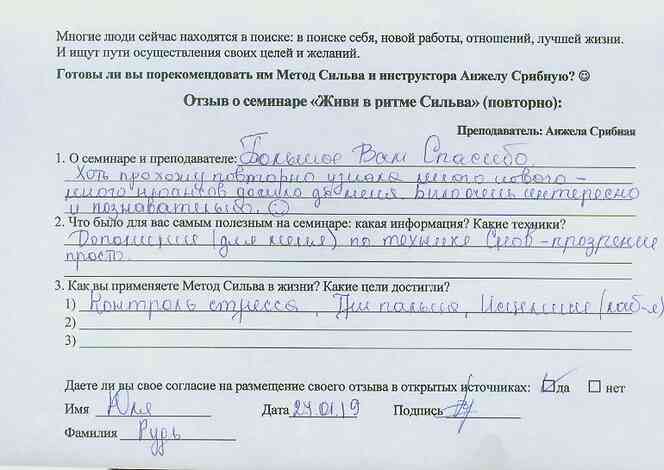 Многие люди сейчас находятся в поиске: в поиске себя, новой работы, отношений, лучшей жизни.
И ищут пути осуществления своих целей и желаний.
Готовы ли вы порекомендовать им Метод Сильва и инструктора Анжелу Срибную? ☺
Отзыв о семинаре «Живи в ритме Сильва» (повторно):
Преподаватель: Анжела Срибная
1. О семинаре и преподавателе: Большое Вам Спасибо.
Хоть прохожу повторно узнала много нового –
много нюансов дошло до меня. Было очень интересно
и познавательно. ☺
2. Что было для вас самым полезным на семинаре: какая информация? Какие техники?
(для меня) по технике Снов – прозрение
просто.
3. Как вы применяете Метод Сильва в жизни? Какие цели достигли?
1) Контроль стресса, Три пальца, Исцеление (лаб-я)
2)
3)
Даете ли вы свое согласие на размещение своего отзыва в открытых источниках: ☑ да ☐ нет
Имя Юля Дата 27.01.19 Подпись
Фамилия Рудь